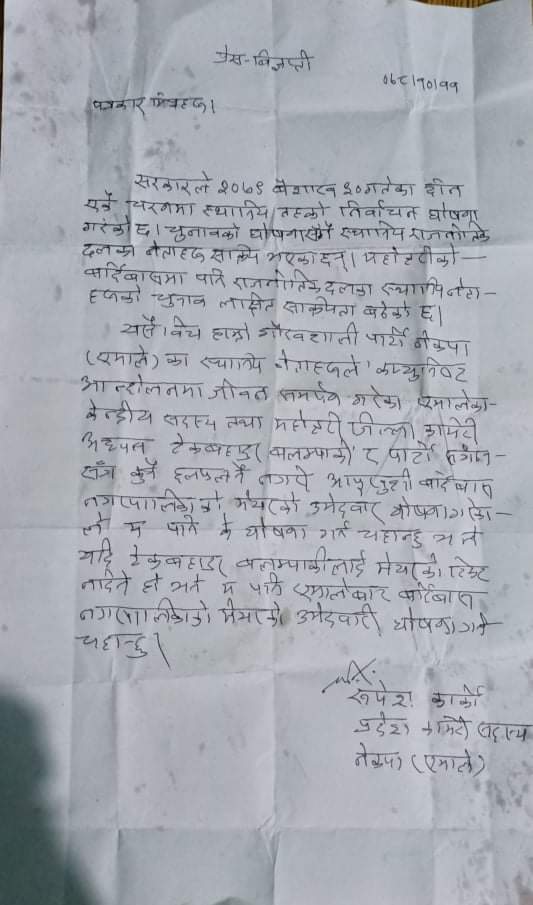 प्रेस-विज्ञप्ती
०७८।१०।११
पत्रकार मित्रहरु।
सरकारले २०७९ बैशाख ३० गतेका दीन
एकै चरनमा स्थानिय तहको निर्वाचन घोषना
गरेको छ। चुनावको घोषनासँगै स्थानिय राजनीतिक
दलका नेताहरु सक्रिय भएका छन्। महोत्तरीको
बर्दिबासमा पनि राजनीतिक दलका स्थानिय नेता-
हरुको चुनाव लक्षित सक्रियता बढेको छ।
यसै बिच हाम्रो गौरवशाली पार्टी नेकपा
(एमाले) का स्थानिय नेताहरुले कम्युनिष्ट
आन्दोलनमा जीवन समर्पन गरेका एमालेका
केन्द्रीय सदस्य तथा महोत्तरी जिल्ला कमिटी
अध्यक्ष टेकबहादुर वलम्पाकी र पार्टी
सँग कुनै छलफलनै नगरी आफुखुशी बर्दिबास
नगरपालिकाको मेयरको उमेदवार घोषना गरेको-
ले म पनि के घोषना गर्न चहान्छु भने
यदि टेकबहादुर वलम्पाकीलाई मेयरको टिकट
नदिने हो भने म पनि एमालेबाट बर्दिबास
नगरपालिकाको मेयरको उमेदवारी घोषना गर्न
चहान्छु।
रुपेश कार्की
प्रदेश कमिटी सदस्य
नेकपा (एमाले)